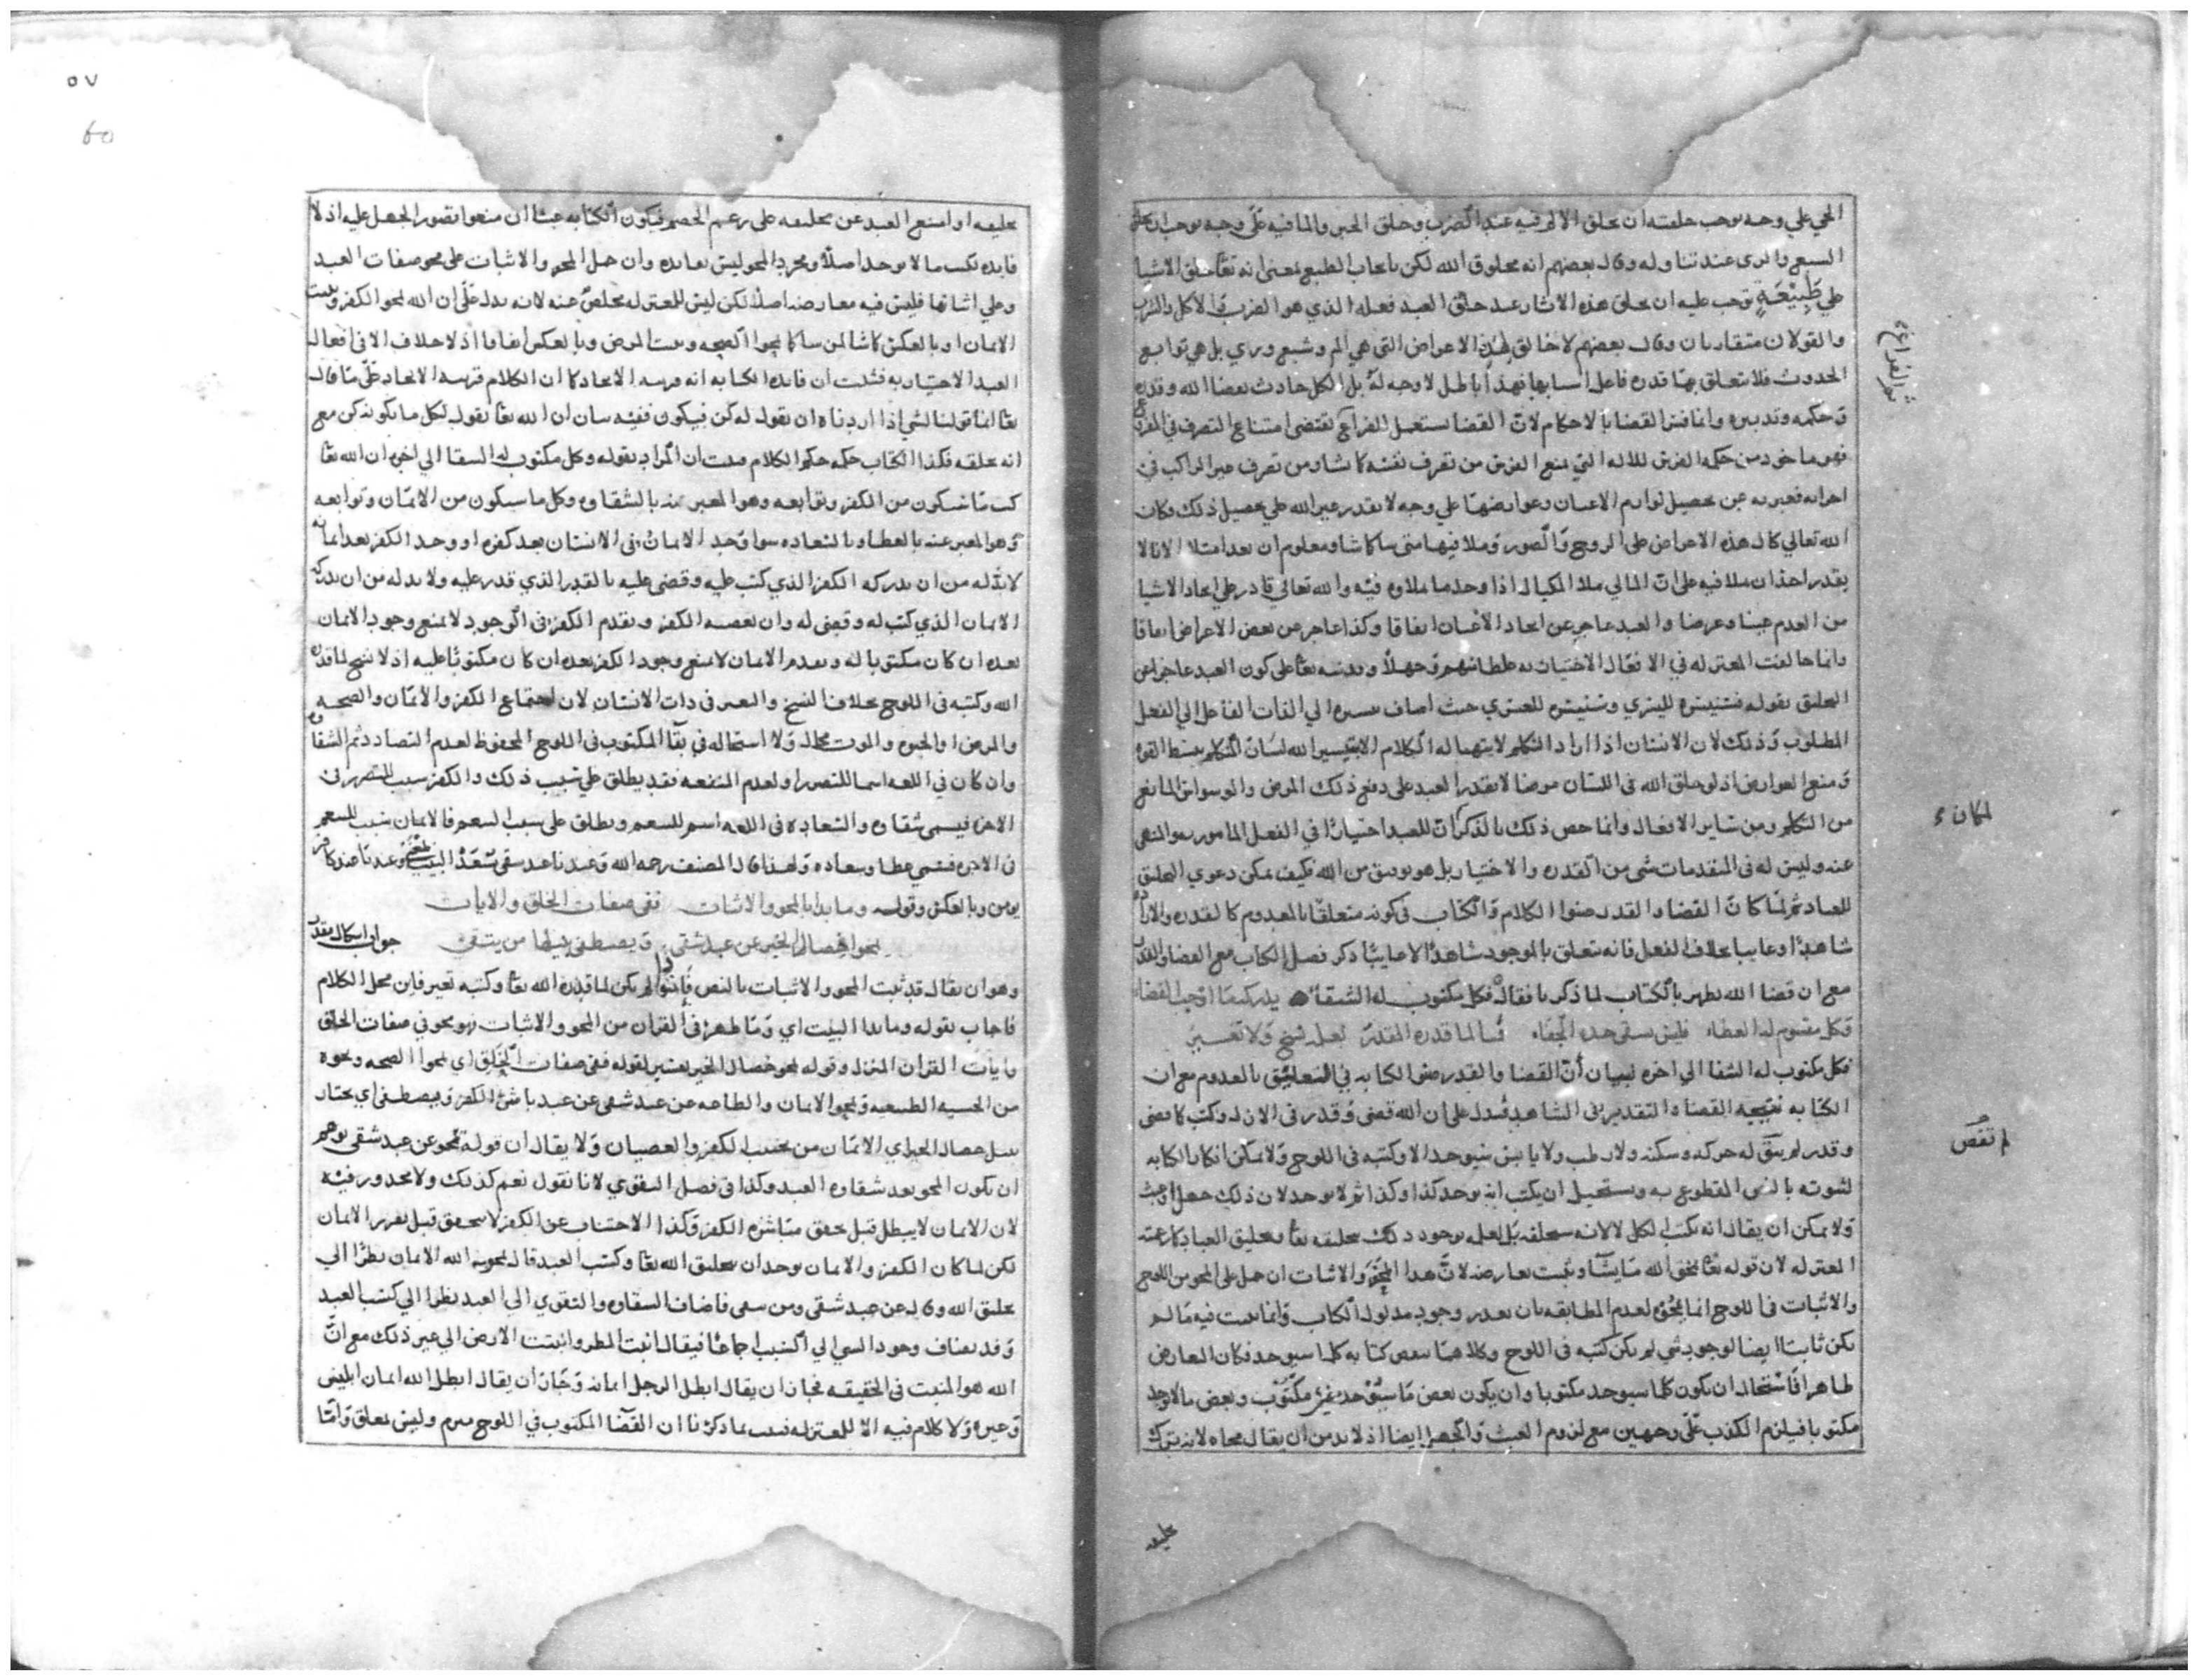 الحي علي وجه يوجب خلقته ان يخلق الالم فيه عند الضرب وخلق الخبز والما فيه علي وجه يوجب ان يخلق
الشبع والري عند تناوله وقال بعضهم انه مخلوق الله لكن بايجاب الطبع بمعني انه تعا خلق الاشيا
علي طَبِيْعَةٍ توجب عليه ان يخلق هذه الاثار عند خلق العبد فعله الذي هو الضرب والاكل والشرب
والقولان متقاربان وقال بعضهم لا خالق لهذه الاعراض التي هي الم وشبع وري بل هي توابع
الحدوث فلا تتعلق بها قدرة فاعل اسبابها فهذا باطل لا وجه له بل الكل حادث بقضا الله وقدره
وحكمه وتدبيره وانما فسر القضا بالاحكام لان القضا يستعمل للفراغ يقتضي امتناع التصرف في المفروغ
فهو ماخوذ من حكمة الفرس للالة التي تمنع الفرس من تصرف نفسه كما شا ومن تصرف غير الراكب في
اجرايه فعبر به عن تحصيل لوازم الاعيان وعوارضها علي وجه لا يقدر غير الله علي تحصيل ذلك وكان
الله تعالي كال هذه الاعراض علي الروح والصور وملا فيها متي شا كما شا ومعلوم ان بعد امتلا الانا لا
يقدر احد ان يملا فيه علي ان المالي يملا المكيال اذا وجد ما يملاوه فيه والله تعالي قادر علي ايجاد الاشيا
من العدم عينا وعرضا والعبد عاجز عن ايجاد الاعيان اتفاقا وكذا عاجز عن بعض الاعراض اتفاقا
وانما خالفت المعتزلة في الافعال الاختيارية غلطا منهم وجهلا وقد نبه تعا علي كون العبد عاجزا عن
التخليق بقوله فسنيسره لليسري وسنيسره للعسري حيث اضاف تيسيره الي الفات الفاعل الي الفعل
المطلوب وذلك لان الانسان اذا اراد التكلم لا يتهيا له الكلام الا بتيسير الله لسان المتكلم ببسط القوة
ومنع العوارض اذ لو خلق الله في اللسان مرضا لا يقدر العبد علي دفع ذلك المرض والوسواس المانع
من التكلم ومن ساير الافعال وانما خص ذلك بالذكر لان للعبد اختيارا في الفعل المامور به والمنهي
عنه وليس له في المقدمات شي من القدرة والاختيار بل هو توفيق من الله فكيف يمكن دعوي التخليق
للعباد ثم لما كان القضا والقدر صنوا الكلام والكتاب في كونه متعلقا بالمعدوم كالقدرة والارادة
شاهدا وغايبا بخلاف الفعل فانه يتعلق بالموجود شاهدا لا غايبا ذكر فصل الكتاب مع القضا والقدر
مع ان قضا الله يظهر بالكتاب لما ذكرنا فقال فكل مكتوب له الشقا يدركه ما اوجب القضا
وكل مقسوم له العطاء فليس يبقي عنده الجفاء فما لما قدره المقدر لعله نسخ ولا تغيير
فكل مكتوب له الشقا الي اخره لبيان أنّ القضا والقدر صنو الكتابة في التعليق بالمعدوم مع ان
الكتابة نتيجة القضا والتقدير في الشاهد فدل علي ان الله قضي وقدر في الازل وكتب كما قضي
وقدر لم يبق له حركة وسكنة ولا رطب ولا يابس سيوجد الا وكتبه في اللوح ولا يمكن انكار الكتابة
لثبوته بالنص المقطوع به ويستحيل ان يكتب انه يوجد كذا وكذا ثم لا يوجد لان ذلك جهل او عبث
ولا يمكن ان يقال انه يكتب الكل لا لانه سيخلقه بل لعلمه بوجود ذلك بتخليقه تعا وتخليق العباد كما زعمته
المعتزلة لان قوله تعا يمحو الله ما يشا ويثبت يعارضه لان هذا المحو والاثبات ان حمل علي المحو من اللوح
والاثبات في اللوح انما يمحوه لعدم المطابقة بان تعذر وجود مدلول الكتاب وانما يثبت فيه ما لم
يكن ثابتا ايضا لوجود شي لم يكن كتبه في اللوح وكلاهما ينقض كتابه كلما سيوجد فكان التعارض
ظاهرا فاستحال ان يكون كلما سيوجد مكتوبا وان يكون بعض ما سيوجد غير مكتوب وبعض ما لا يوجد
مكتوبا فيلزم الكذب علي وجهين مع لزوم العبث والجهل ايضا اذ لا بد من ان يقال محاه لانه يترك
تخليقه
تخليقه او امتنع العبد عن تخليقه علي زعم الخصم فيكون الكتابة عبثا ان منعوا تصور الجهل عليه اذ لا
فايدة بكتب ما لا يوجد اصلا ومجرد المحو ليس بفايدة وان حمل المحو والاثبات علي محو صفات العبد
وعلي اثباتها فليس فيه معارضة اصلا لكن ليس للمعتزلة مخلص عنه لانه يدل علي ان الله يمحو الكفر ويثبت
الايمان او بالعكس كما شا لمن شا كما يمحوا الصحة ويثبت المرض وبالعكس اتفاقا اذ لا خلاف الا في افعال
العبد الاختيارية فثبت ان فايدة الكتابة انه قرينة الايجاد كما ان الكلام قرينة الايجاد علي ما قال
تعا انما قولنا لشي اذا اردناه ان نقول له كن فيكون ففيه بيان ان الله تعا يقول لكل ما يكونه كن مع
انه يخلقه فكذا الكتاب حكمه حكم الكلام فثبت ان المراد بقوله وكل مكتوب له الشقا الي اخره ان الله تعا
كتب ما سيكون من الكفر وتوابعه وهو المعبر عنه بالشقاوة وكل ما سيكون من الايمان وتوابعه
وهو المعبر عنه بالعطا وبالسعادة سوا وجد الايمان في الانسان بعد كفره او وجد الكفر بعد ايمانه
لا بد له من ان يدركه الكفر الذي كتب عليه وقضي عليه بالقدر الذي قدر عليه ولا بد له من ان يدركه
الايمان الذي كتب له وقضي له وان تعصبه الكفر وتقدم الكفر في الوجود لا يمنع وجود الايمان
بعده ان كان مكتوبا له وتقدم الايمان لا يمنع وجود الكفر بعده ان كان مكتوبا عليه اذ لا نسخ لما قدره
الله وكتبه في اللوح بخلاف النسخ والتغير في ذات الانسان لان اجتماع الكفر والايمان والصحة
والمرض او الحيوة والموت محال ولا استحالة في بقا المكتوب في اللوح المحفوظ لعدم التضاد ثم الشقاوة
وان كان في اللغة اسما للتضرر او لعدم المنفعة فقد يطلق علي سبب ذلك والكفر سبب التضرر في
الاخرة فيسمي شقاوة والسعادة في اللغة اسم للتنعم ويطلق علي سبب التنعم فالايمان سبب للتنعم
في الاخرة فسمي عطا وسعادة ولهذا قال المصنف رحمه الله وعندنا عبد شقي سَعَدُ البيت وعندنا عبد كافر
يومن وبالعكس وقوله وما بدا بالمحو والاثبات ففي صفات الخلق والايات
يمحوا خصال الخير عن عبد شقي ويصطفي بنيلها من يتقي جواب اشكال مقدر
وهو ان يقال قد ثبت المحو والاثبات بالنص فاذا لم يكن لما قدره الله تعا وكتبه تغير فاين محل الكلام
فاجاب بقوله وما بدا البيت اي وما ظهر في القران من المحو والاثبات فهو محو في صفات الخلق
وايات القران المنزل وقوله يمحو خصال الخير تفسير لقوله ففي صفات الخلق اي يمحوا الصحة ونحوه
من الحسية الطبيعية ويمحو الايمان والطاعة من عبد شقي عن عبد باشر الكفر ويصطفي اي يختار
بنيل خصال الخير اي الايمان من يجتنب الكفر والعصيان ولا يقال ان قوله يمحو عن عبد شقي يوهم
ان يكون المحو بعد شقاوة العبد وكذا في فصل التقوي لانا نقول نعم كذلك ولا محذور فيه
لان الايمان لا يبطل قبل تحقق مباشرة الكفر وكذا الاجتناب عن الكفر لا يتحقق قبل تقرر الايمان
لكن لما كان الكفر والايمان يوجدان بتخليق الله تعا وكسب العبد قال يمحوه الله الايمان نظرا الي
تخليق الله وقال عن عبد شقي ومن يتقي فاضاف الشقاوة والتقوي الي العبد نظرا الي كسب العبد
وقد يضاف وجود الشي الي السبب اجماعا فيقال انبت المطر وانبتت الارض الي غير ذلك مع ان
الله هو المنبت في الحقيقة فجاز ان يقال ابطل الرجل ايمانه وجاز ان يقال ابطل الله ايمان ابليس
وغيره ولا كلام فيه الا للمعتزلة فثبت بما ذكرنا ان القضا المكتوب في اللوح مبرم وليس بمعلق وانما
٥٧
60